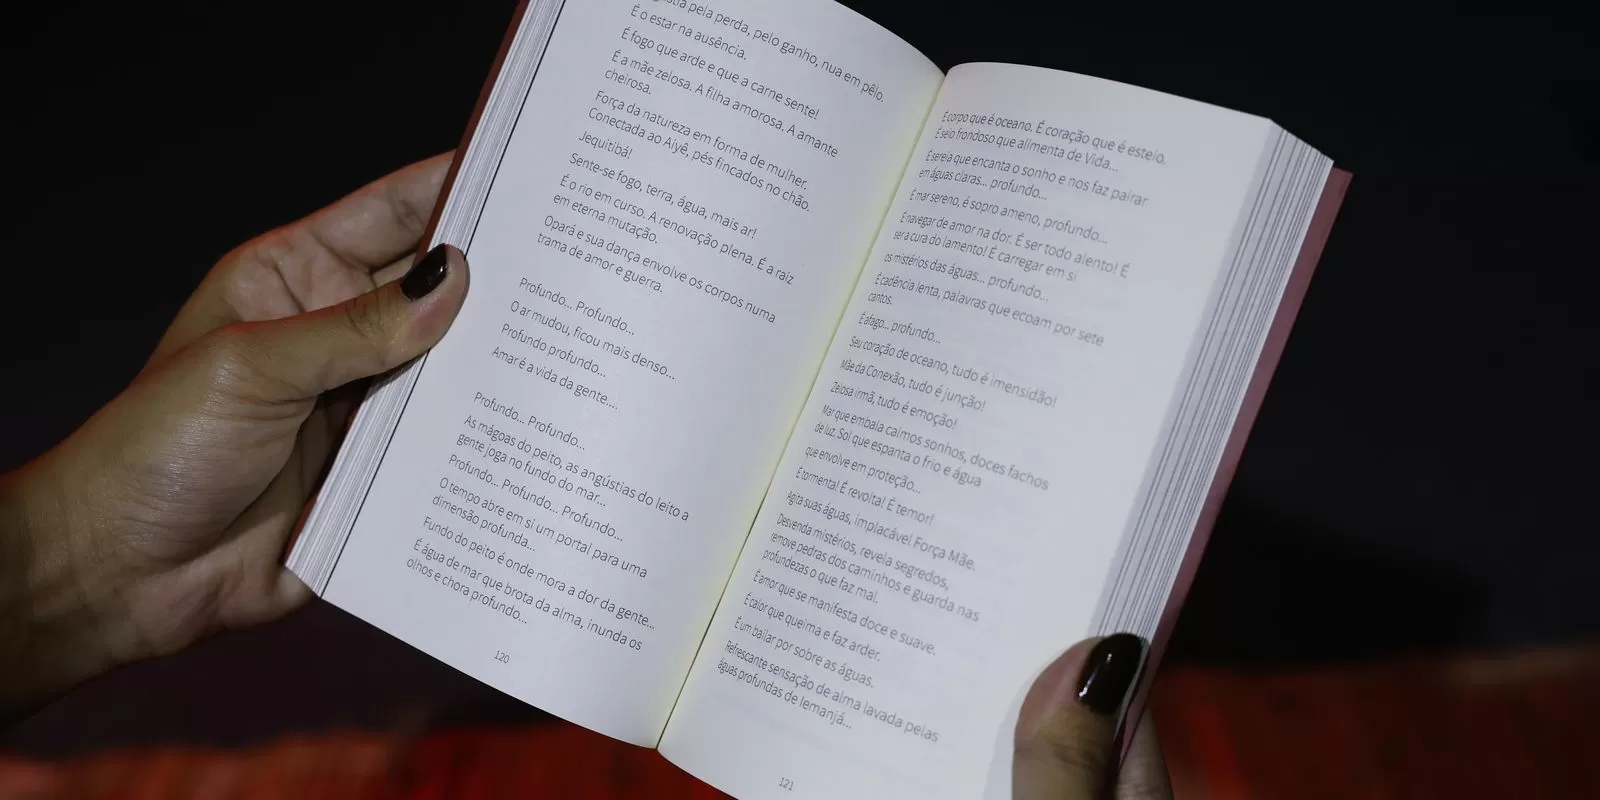 pela perda, pelo ganho, nua em pêlo.
É o estar na ausência.
É fogo que arde e que a carne sente!
É a mãe zelosa. A filha amorosa. A amante
cheirosa.
Força da natureza em forma de mulher.
Conectada ao Aiyê, pés fincados no chão.
Jequitibá!
Sente-se fogo, terra, água, mais ar!
É o rio em curso. A renovação plena. É a raiz
em eterna mutação.
Opará e sua dança envolve os corpos numa
trama de amor e guerra.
Profundo... Profundo...
O ar mudou, ficou mais denso...
Profundo profundo...
Amar é a vida da gente....
Profundo... Profundo...
As mágoas do peito, as angústias do leito a
gente joga no fundo do mar...
Profundo... Profundo... Profundo...
O tempo abre em si um portal para uma
dimensão profunda...
Fundo do peito é onde mora a dor da gente...
É água de mar que brota da alma, inunda os
olhos e chora profundo...
120
É corpo que é oceano. É coração que é esteio.
É seio frondoso que alimenta de Vida...
É sereia que encanta o sonho e nos faz pairar
em águas claras... profundo...
É mar sereno, é sopro ameno, profundo...
É navegar de amor na dor. É ser todo alento! É
ser a cura do lamento! É carregar em si
os mistérios das águas... profundo...
É cadência lenta, palavras que ecoam por sete
cantos.
É afago... profundo...
Seu coração de oceano, tudo é imensidão!
Mãe da Conexão, tudo é junção!
Zelosa irmã, tudo é emoção!
Mar que embala calmos sonhos, doces fachos
de luz. Sol que espanta o frio e água
que envolve em proteção...
É tormenta! É revolta! É temor!
Agita suas águas, implacável Força Mãe.
Desvenda mistérios, revela segredos,
remove pedras dos caminhos e guarda nas
profundezas o que faz mal.
É amor que se manifesta doce e suave.
É calor que queima e faz arder.
É um bailar por sobre as águas.
Refrescante sensação de alma lavada pelas
águas profundas de Iemanjá...
121